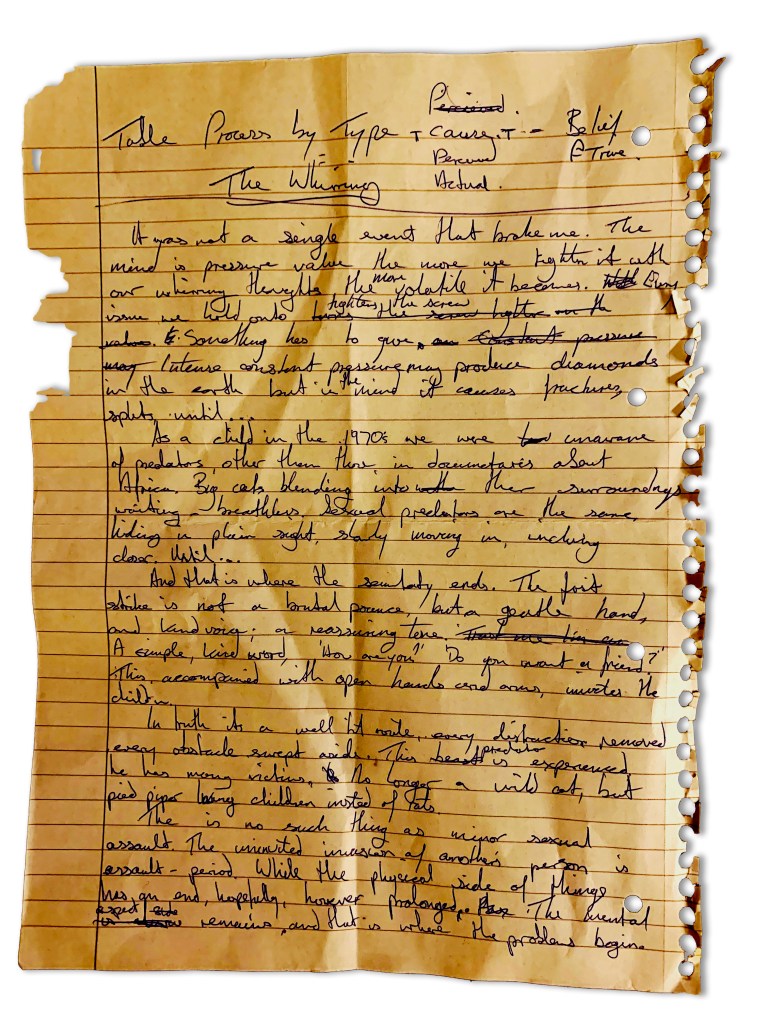 Perceived.
Table Process by Type + Cause. T. - Belief
Perceived E True.
The Whirring Actual.
It was not a single event that broke me. The
mind is pressure value the more we tighten it with
our whirring thoughts the more volatile it becomes. Every
issue we hold onto tightens the screw turns the screw tighter on the
valves. Something has to give, constant pressure
may Intense constant pressure may produce diamonds
in the earth but in the mind it causes fractures,
splits, until...
As a child in the 1970s we were unaware
of predators, other than those in documentaries about
Africa. Big cats blending into their surroundings
waiting - breathless. Sexual predators are the same,
hiding in plain sight, slowly moving in, inching
closer. Until...
And that is where the similarity ends. The first
strike is not a brutal pounce, but a gentle hand,
and kind voice; a reassuring tone.
A simple, kind word, 'How are you?' 'Do you want a friend?'
This, accompanied with open hands and arms, invites the
children.
In truth its a well lit route, every distraction removed
every obstacle swept aside. This beast predator is experienced,
he has many victims, No longer a wild cat, but
pied piper luring children insted of rats.
The is no such thing as minor sexual
assault. The uninvited invasion of another person is
assault - period. While the physical side of things
has an end, hopefully, however prolonged. The mental
aspect side remains, and that is where the problems begin.